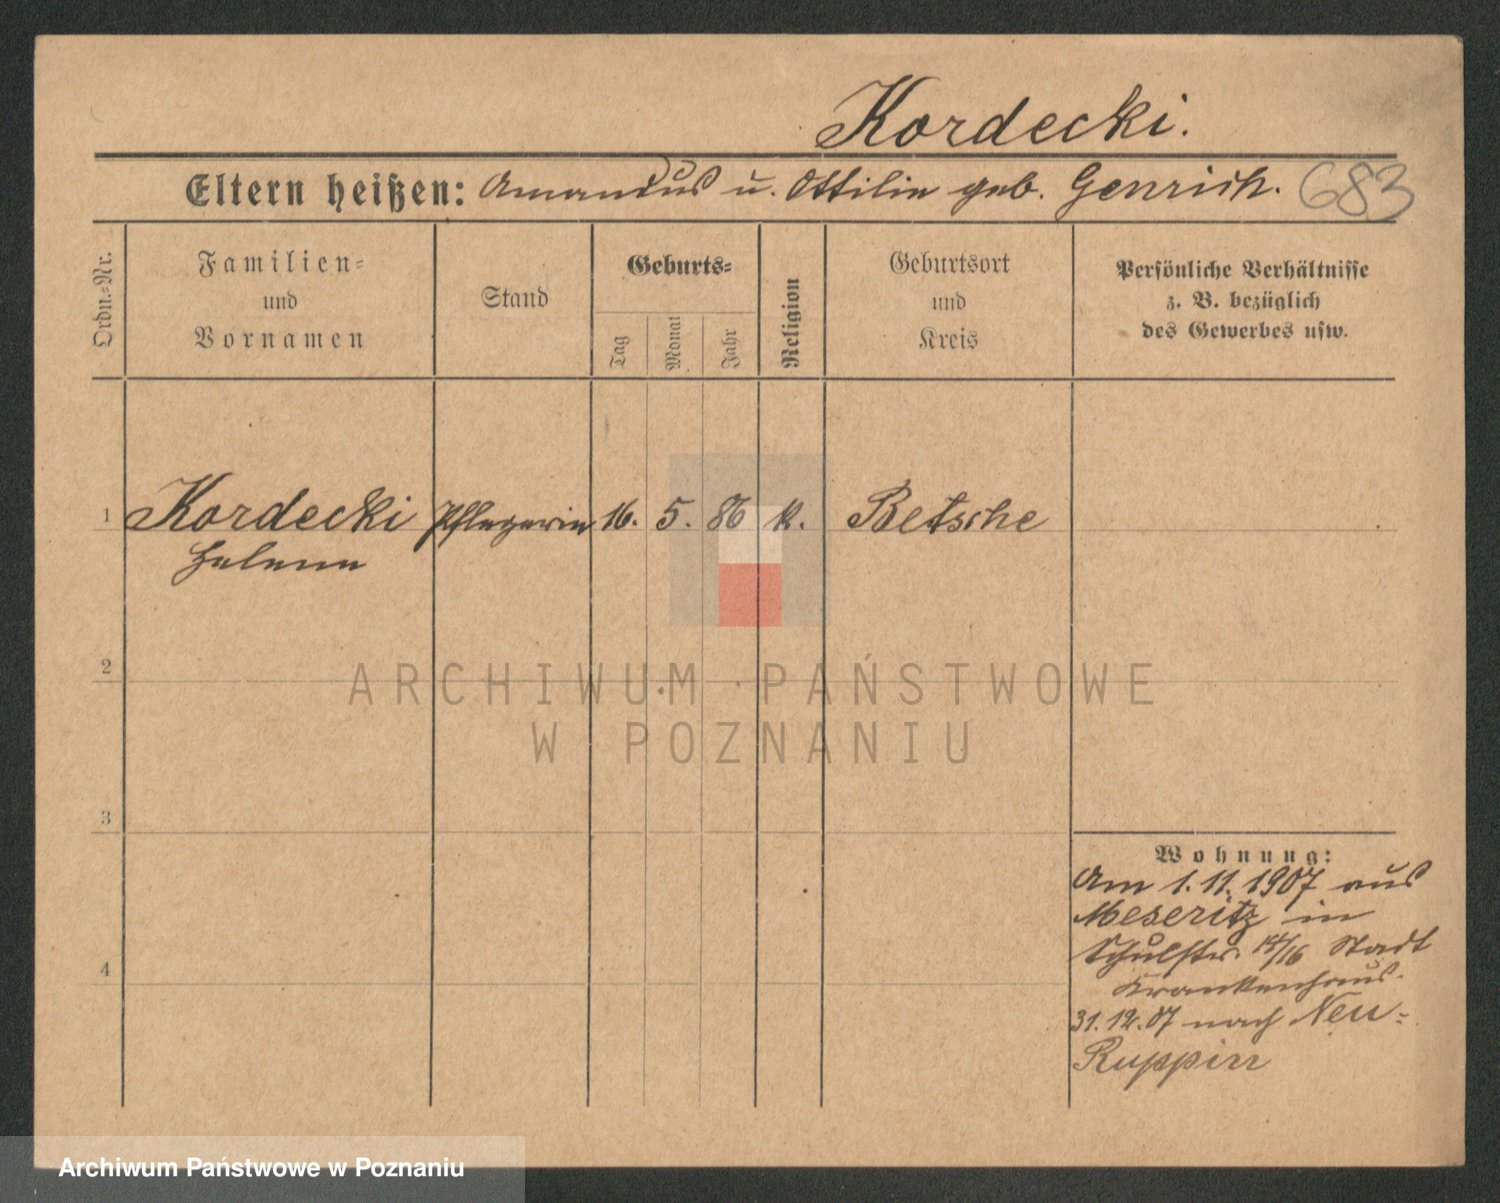 Kordecki.
Eltern heißen: Amandus u. Ottilie geb. Genrich. 683
Ordn.=Nr.
Familien=
und
Vornamen
Stand
Geburts=
Tag
Monat
Jahr
Religion
Geburtsort
und
Kreis
Persönliche Verhältnisse
z. B. bezüglich
des Gewerbes usw.
1 Kordecki Pflegerin 16. 5. 86 k. Betsche
Helene
2
ARCHIWUM PAŃSTWOWE
W POZNANIU
3
Wohnung:
Am 1.11.1907 aus
Meseritz in
Schulstr. 14/16 Stadt
4
Krankenhaus.
31.12.07 nach Neu=
Ruppin
Archiwum Państwowe w Poznaniu